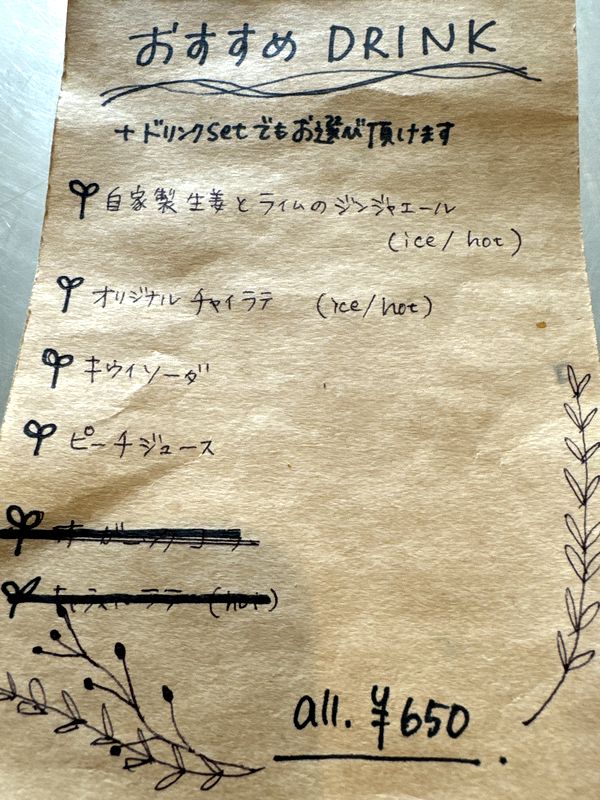 おすすめ DRINK
+ ドリンクsetでもお選び頂けます
自家製生姜とライムのジンジャエール
(ice/hot)
オリジナル チャイラテ (ice/hot)
キウイソーダ
ピーチジュース
(hot)
all. ¥650.